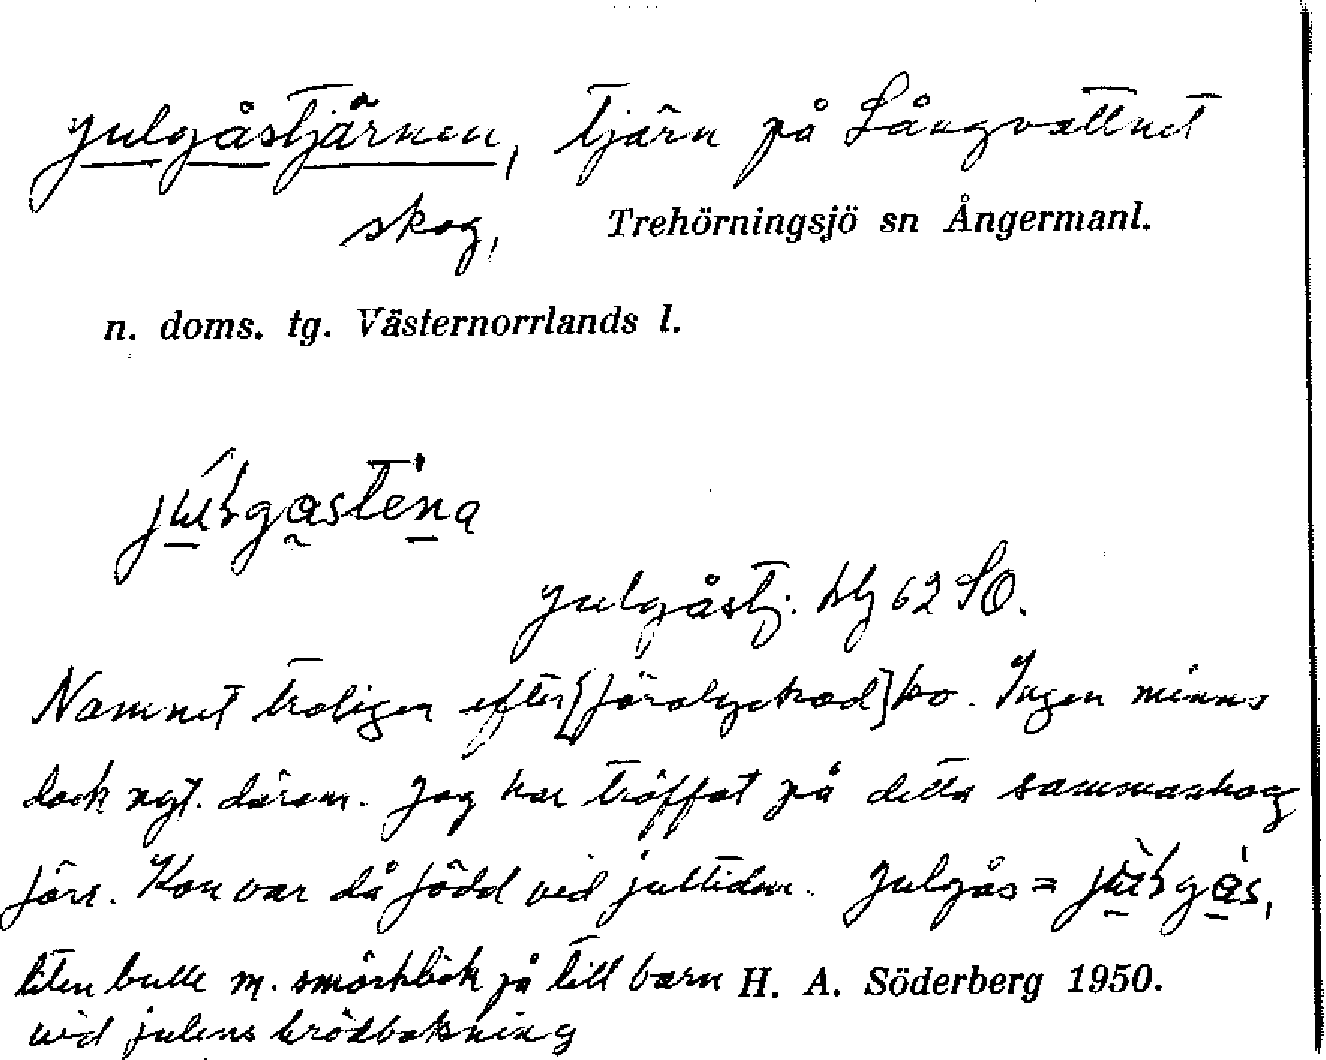 Julgåstjärnen, tjärn på Långvattnet
skog, Trehörningsjö sn Ångermanl.
n. doms. tg. Västernorrlands l.
Julgåstj. blg 62 SO.
Namnet troligen efter [förolyckad] ko. Ingen minns
dock ngt. därom. Jag har träffat på detta sammanhag
förr. Kon var då född vid jultiden. Julgås =
liten bulle m. smörklick på till barn H. A. Söderberg 1950.
vid julens brödbakning